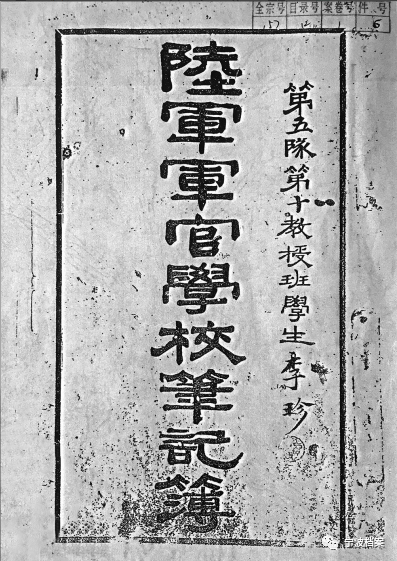 全宗号 目录号 案卷号 件号
157 1 6
第五隊第十教授班學生李珍
陸軍軍官學校筆記簿
宁波档案